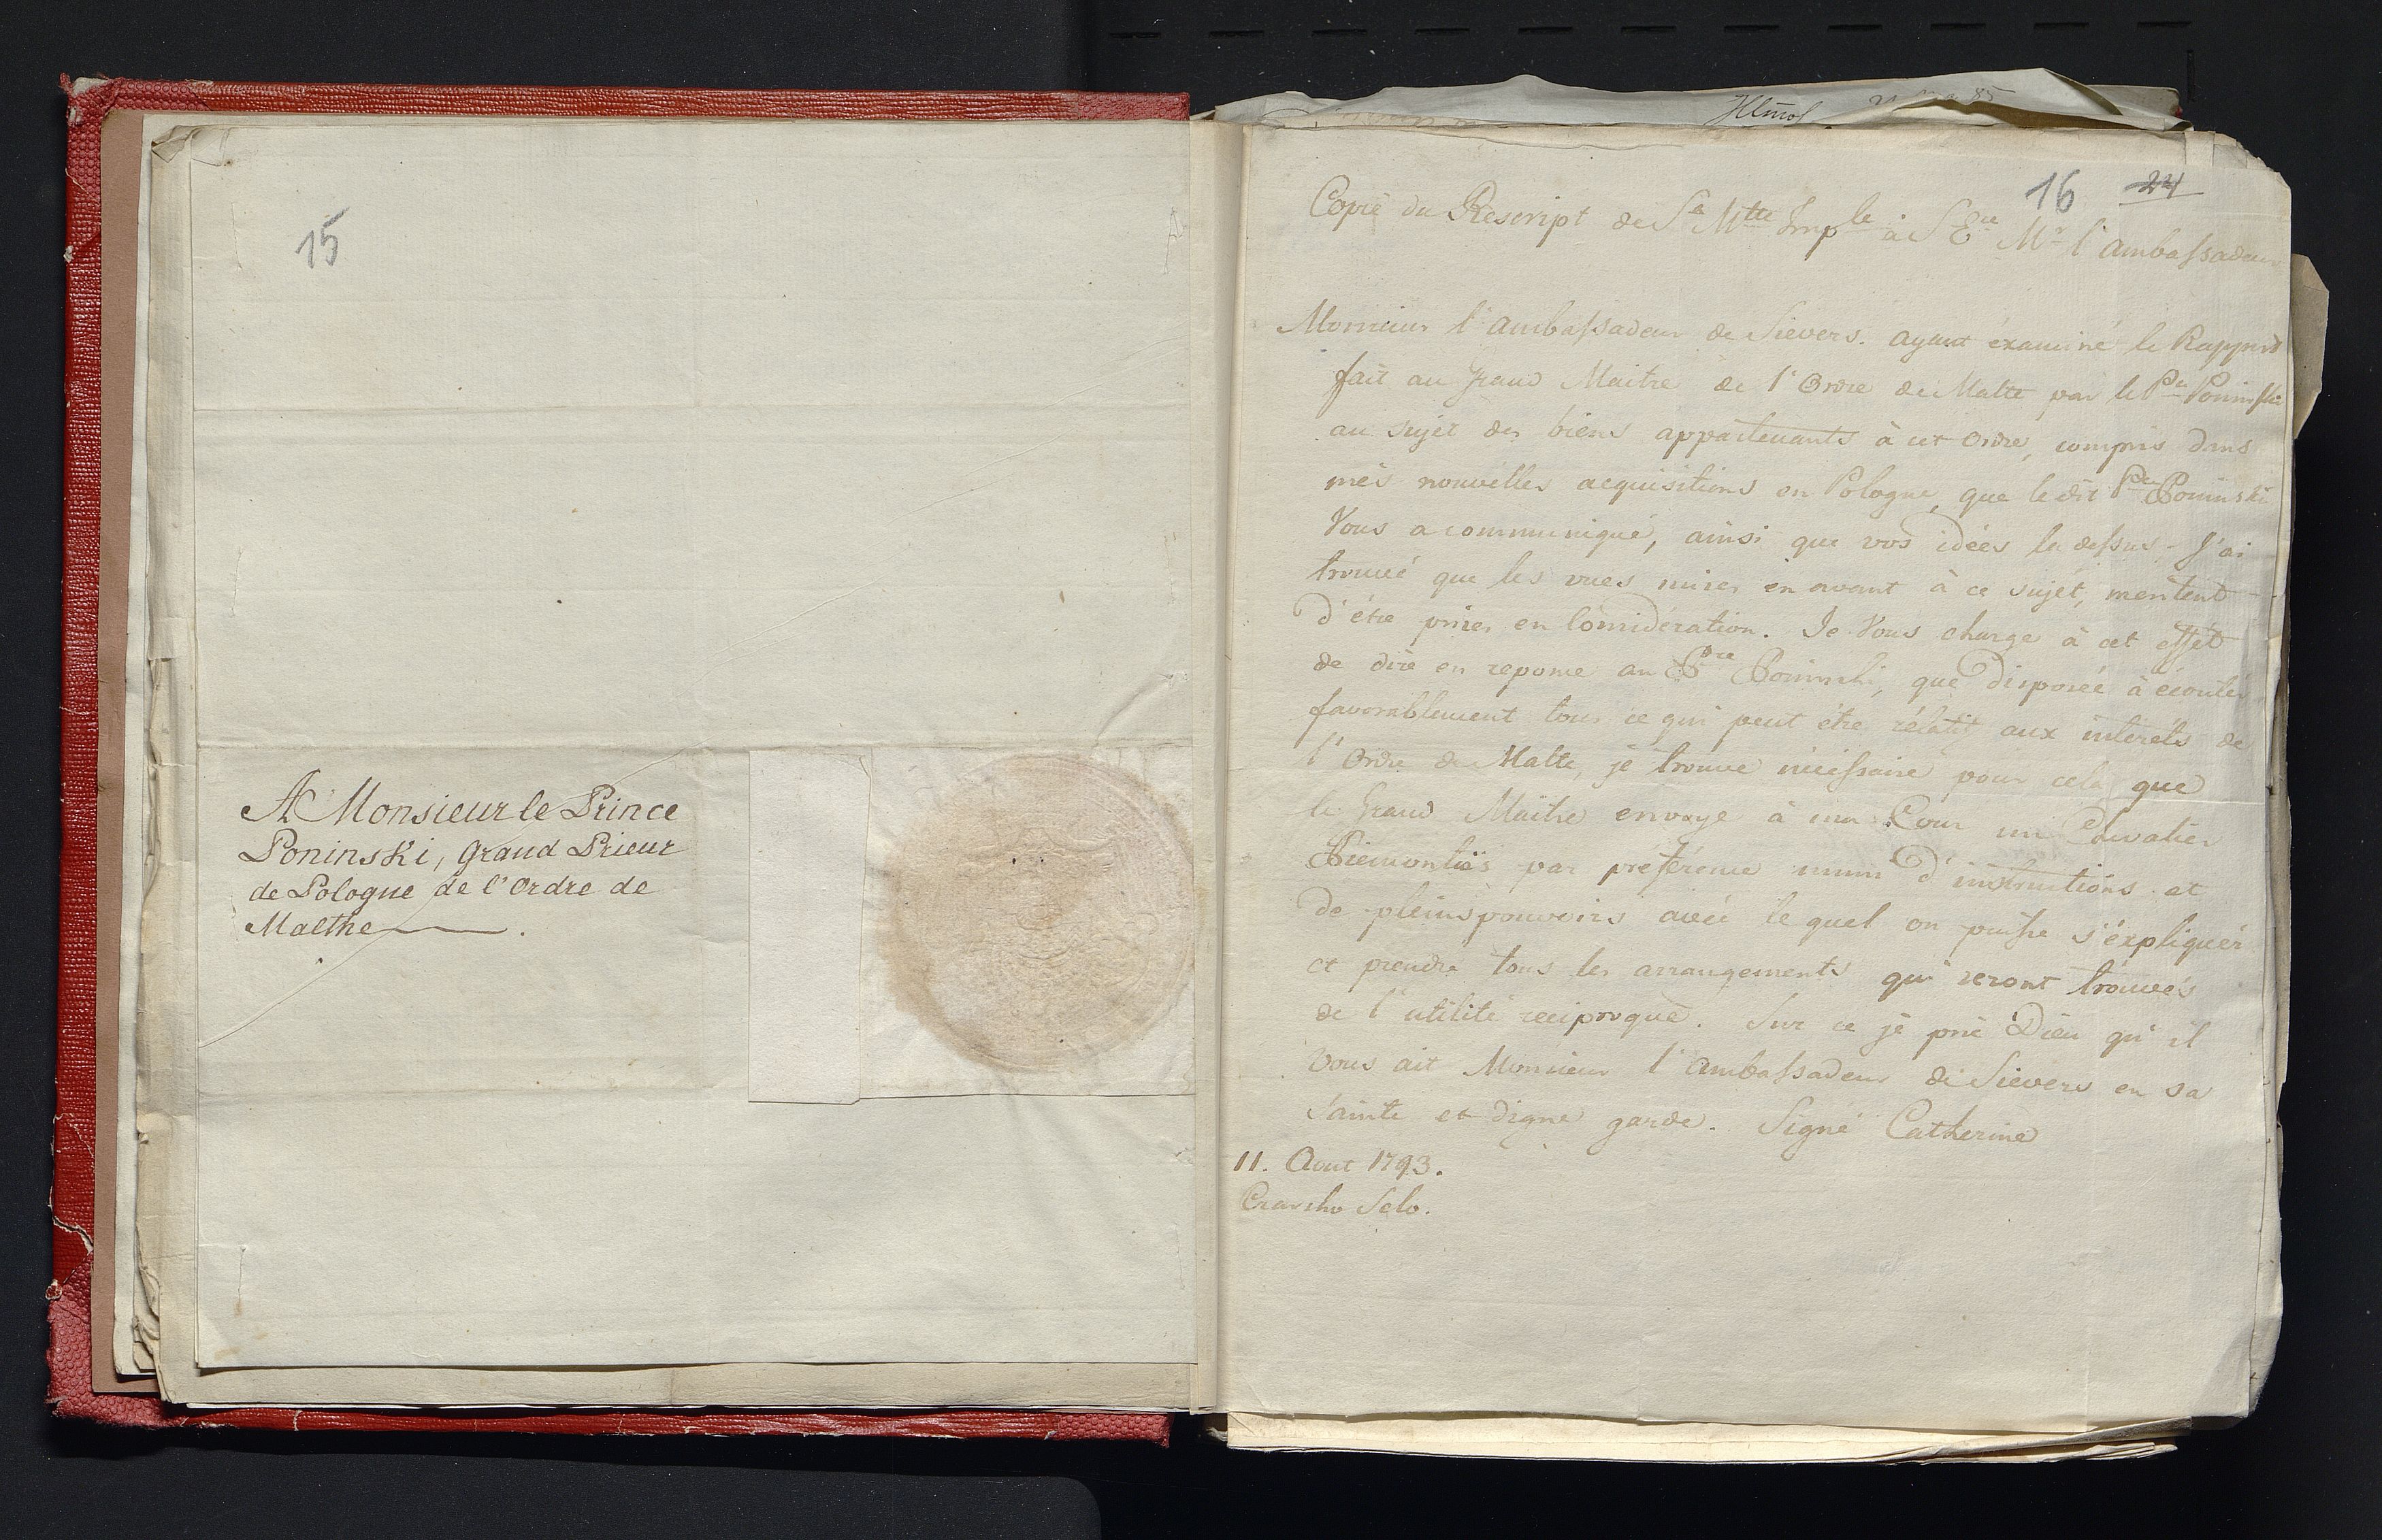 15
A Monsieur le Prince
Poninski, Grand Prieur
de Pologne de l'Ordre de
Malthe
16 24
Copie du Rescript de Sa Mtté Imple à S Ece Mr l'ambassadeur
Monsieur l'ambassadeur de Sievers. ayant éxaminé le Rapport
fait au Grand Maitre de l'Ordre de Malte par le Pce Poninski
au sujet des biens appartenants à cet Ordre, compris dans
més nouvelles acquisitions en Pologne, que le dit Pce Poninski
Vous a communiqué, ainsi que vos idées la dessus - J'ai
trouvé que les vues mises en avant à ce sujet, meritent
d'étre prises en Considération. Je Vous charge à cet effét
de dire en reponse au Pce Poninski, que disposée à écouter
favorablement tous ce qui peut étre rélatif aux intérèts de
l'Ordre de Malte, jé trouve nécessaire pour cela que
le Grand Maitre envoye à ma Cour un Chevalier
Piemontois par préférence muni d'instructions et
de pleinspouvoirs avéc le quel on puisse s'éxpliquér
et prendre tous les arrangements qui seront trouvés
de l'utilité reciproque. Sur ce jé prie Dieu qu'il
Vous ait Monsieur l'Ambassadeur de Sievers en sa
Sainte et digne garde. Signé Catherine
11. Aout 1793.
Czarsko Selo.